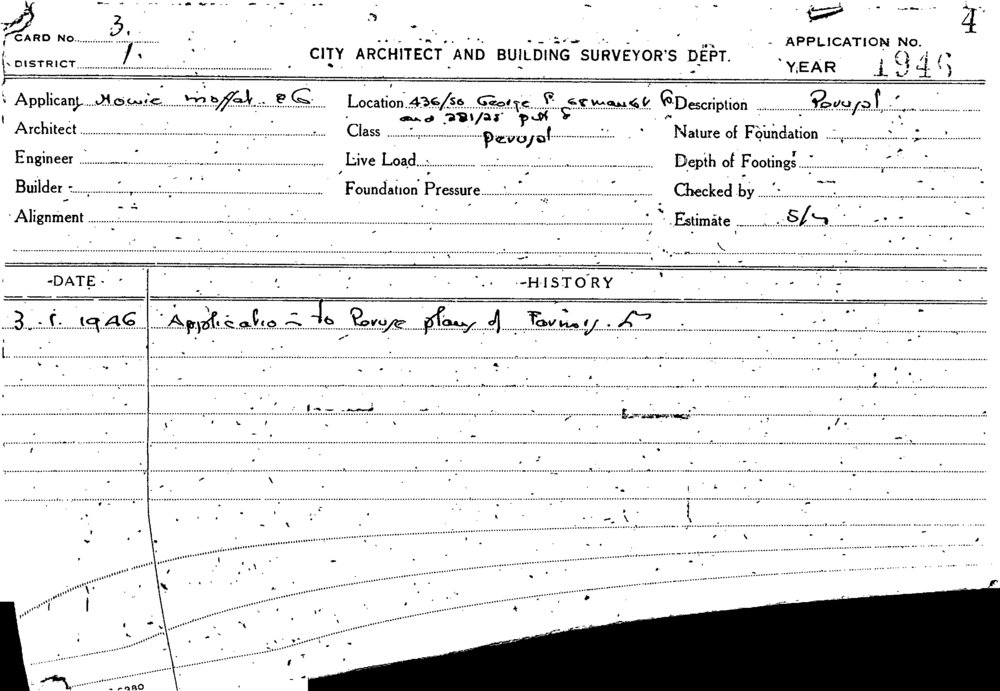 CARD No. 3.
4
DISTRICT 1.
CITY ARCHITECT AND BUILDING SURVEYOR'S DEPT.
APPLICATION No.
YEAR 1946
Applicant Howie Moffat & Co
Location 436/50 George
and 281/25 Pitt
Description Perusal
Architect
Class Perusal
Nature of Foundation
Engineer
Live Load
Depth of Footings
Builder
Foundation Pressure
Checked by
Alignment
Estimate 5/-
DATE
HISTORY
3. 1. 1946 Application to Peruse plans of